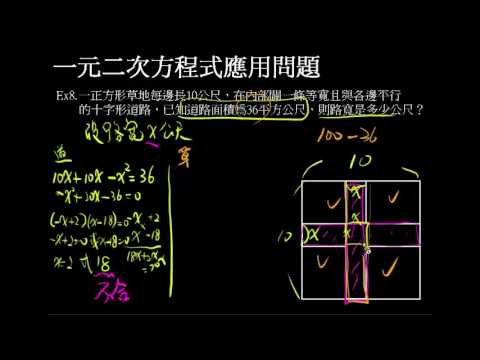 一元二次方程式應用問題
Ex8.一正方形草地每邊長10公尺，在內部闢一條等寬且與各邊平行
的十字形道路，已知道路面積為36平方公尺，則路寬是多少公尺？
設路寬x公尺
100-36
道
草
10
10x+10x-x²=36
-x²+20x-36=0
(-x+2)(x-18)=0
-x +2
x -18
18x+2x
=20x
-x+2=0 或 x-18=0
x=2 或 18
不合
10
x
x
x